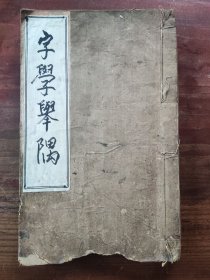 字學舉隅